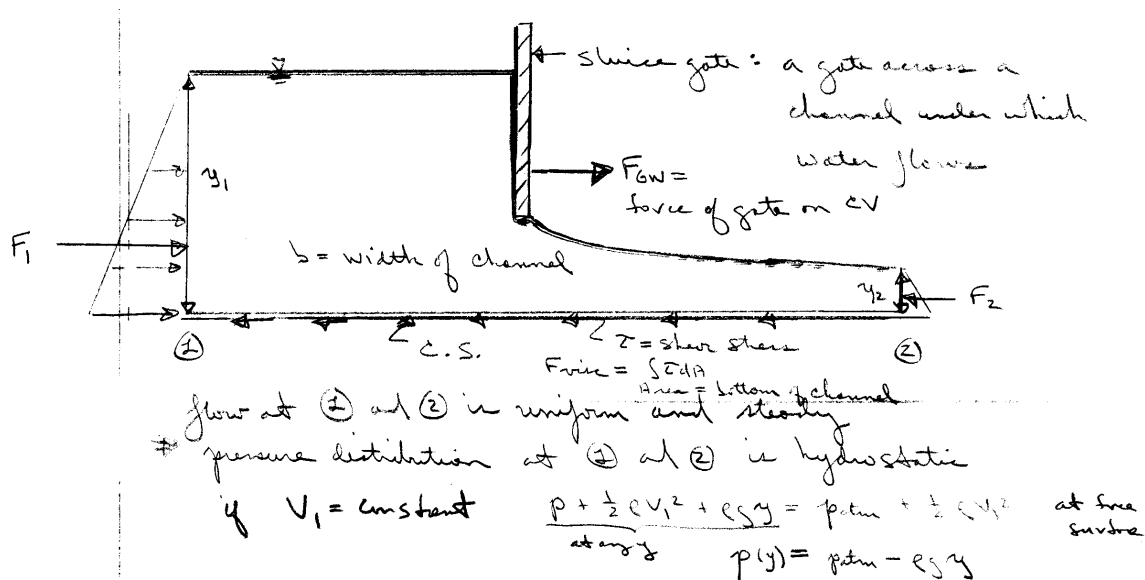 sluice gate: a gate across a
channel under which
water flows
y₁
F_GW =
force of gate on CV
F₁
b = width of channel
y₂
F₂
①
C.S.
τ = shear stress
②
F visc = ∫τdA
Area = bottom of channel
flow at ① and ② is uniform and steady
* pressure distribution at ① and ② is hydrostatic
if V₁ = constant p + ½ρV₁² + ρgy = patm + ½ρV₁² at free
surface
at any y
p(y) = patm - ρgy